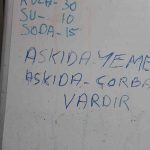 KOLA-30
SU- 10
SODA-15
ASKIDA-YEME
ASKIDA-ÇORBA
VARDIR